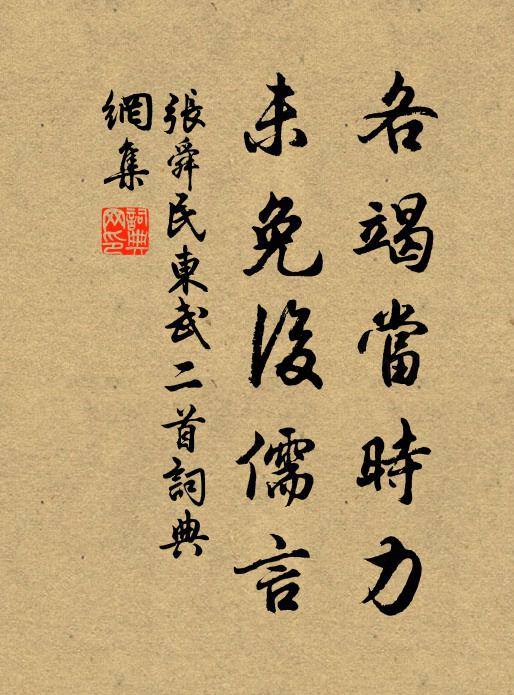 各竭當時力
未免後儒言
張舜民東武二首詞典
網集
詞典网印